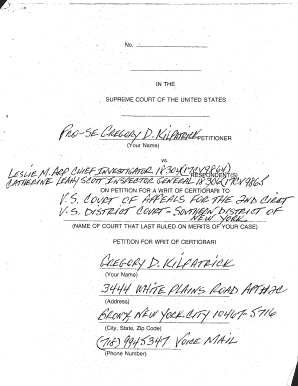 No.
IN THE
SUPREME COURT OF THE UNITED STATES
PRO-SE GREGORY D. KILPATRICK PETITIONER
(Your Name)
vs.
LESLIE M. ARP CHIEF INVESTIGATOR 18304(17CV9864)
RESPONDENT(S)
CATHERINE LEAHY SCOTT INSPECTOR GENERAL 18306(17CV9865)
ON PETITION FOR A WRIT OF CERTIORARI TO
U.S. COURT OF APPEALS FOR THE 2ND CIRCT
U.S. DISTRICT COURT - SOUTHERN DISTRICT OF
NEW YORK
(NAME OF COURT THAT LAST RULED ON MERITS OF YOUR CASE)
PETITION FOR WRIT OF CERTIORARI
GREGORY D. KILPATRICK
(Your Name)
3444 WHITE PLAINS ROAD APT#2C
(Address)
BRONX NEW YORK CITY 10467-5716
(City, State, Zip Code)
(718) 9945347 VOICE MAIL
(Phone Number)